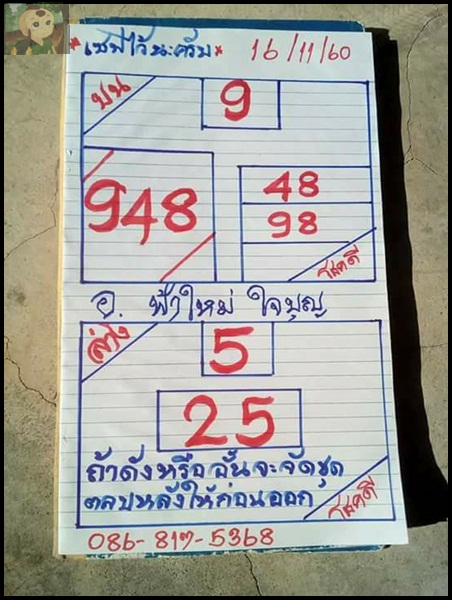 *เซฟไว้นะครับ* 16/11/60
บน
9
948
48
98
โชคดี
อ. ฟ้าใหม่ ใจบุญ
ล่าง
5
25
ถ้าดังหรือฉันจะจัดชุด
ตลบหลังให้ก่อนออก
โชคดี
086-817-5368